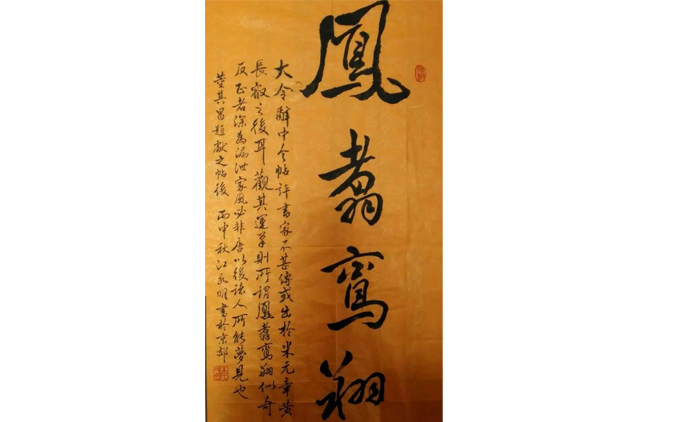 鳳翥鸾翔
大令辭中令帖評書家不甚傳或出於米元章黄
長睿之後耳觀其運筆則所謂鳳翥鸾翔似奇
反正者深為漏泄家風必非唐以後諸人所能夢見也
董其昌題獻之帖後 丙申秋江永明書於京郊